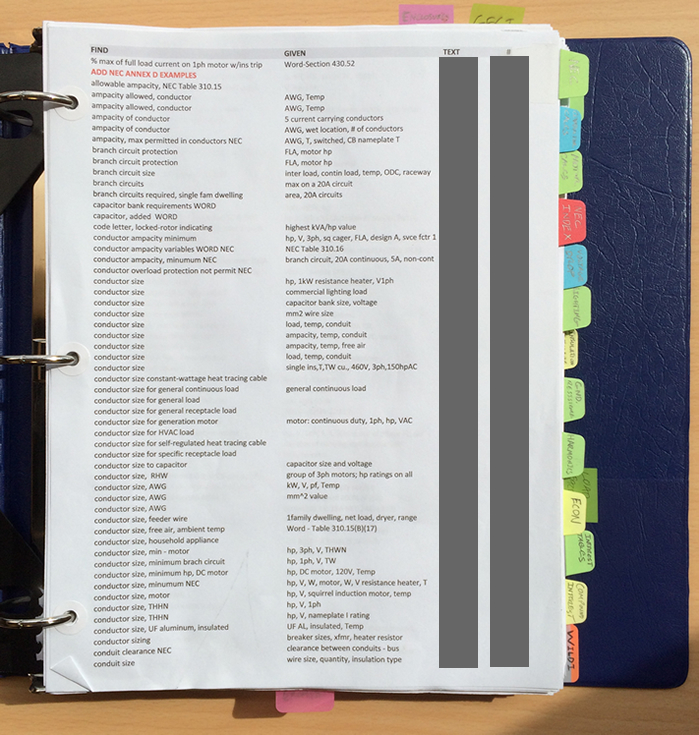 ECON
FIND GIVEN TEXT #
% max of full load current on 1ph motor w/ins trip Word-Section 430.52
ADD NEC ANNEX D EXAMPLES
allowable ampacity, NEC Table 310.15
ampacity allowed, conductor AWG, Temp
ampacity allowed, conductor AWG, Temp
ampacity of conductor 5 current carrying conductors
ampacity of conductor AWG, wet location, # of conductors
ampacity, max permitted in conductors NEC AWG, T, switched, CB nameplate T
branch circuit protection FLA, motor hp
branch circuit protection FLA, motor hp
branch circuit size inter load, contin load, temp, ODC, raceway
branch circuits max on a 20A circuit
branch circuits required, single fam dwelling area, 20A circuits
capacitor bank requirements WORD
capacitor, added WORD
code letter, locked-rotor indicating highest kVA/hp value
conductor ampacity minimum hp, V, 3ph, sq cager, FLA, design A, svce fctr 1
conductor ampacity variables WORD NEC NEC Table 310.16
conductor ampacity, minumum NEC branch circuit, 20A continuous, 5A, non-cont
conductor overload protection not permit NEC
conductor size hp, 1kW resistance heater, V1ph
conductor size commercial lighting load
conductor size capacitor bank size, voltage
conductor size mm2 wire size
conductor size load, temp, conduit
conductor size ampacity, temp, conduit
conductor size ampacity, temp, free air
conductor size load, temp, conduit
conductor size single ins,T,TW cu., 460V, 3ph,150hpAC
conductor size constant-wattage heat tracing cable
conductor size for general continuous load general continuous load
conductor size for general load
conductor size for general receptacle load
conductor size for generation motor motor: continuous duty, 1ph, hp, VAC
conductor size for HVAC load
conductor size for self-regulated heat tracing cable
conductor size for specific receptacle load
conductor size to capacitor capacitor size and voltage
conductor size, RHW group of 3ph motors; hp ratings on all
conductor size, AWG kW, V, pf, Temp
conductor size, AWG mm^2 value
conductor size, AWG
conductor size, feeder wire 1family dwelling, net load, dryer, range
conductor size, free air, ambient temp Word - Table 310.15(B)(17)
conductor size, household appliance
conductor size, min - motor hp, 3ph, V, THWN
conductor size, minimum brach circuit hp, 1ph, V, TW
conductor size, minimum hp, DC motor hp, DC motor, 120V, Temp
conductor size, minumum NEC hp, V, W, motor, W, V resistance heater, T
conductor size, motor hp, V, squirrel induction motor, temp
conductor size, THHN hp, V, 1ph
conductor size, THHN hp, V, nameplate I rating
conductor size, UF aluminum, insulated UF AL, insulated, Temp
conductor sizing breaker sizes, xfmr, heater resistor
conduit clearance NEC clearance between conduits - bus
conduit size wire size, quantity, insulation type
NEC
NEC INDEX
HARMONICS
INTEREST TABLES
COMPOUND INTEREST
WILDI